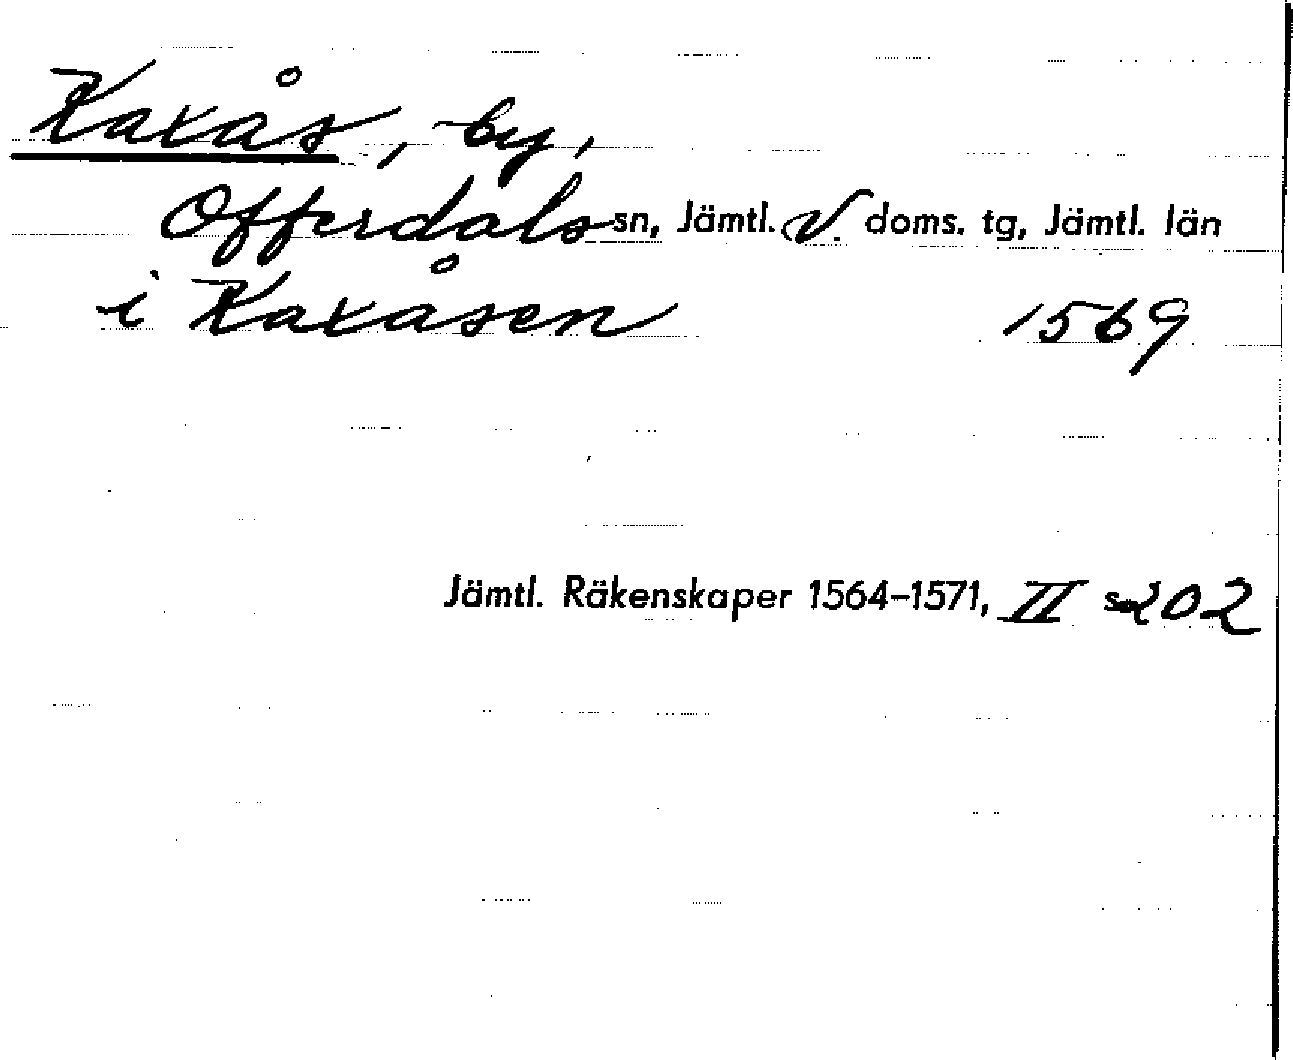 Kaxås, by,
Offerdals sn, Jämtl. V. doms. tg, Jämtl. län
i Kaxåsen 1569
Jämtl. Räkenskaper 1564–1571, II s. 202